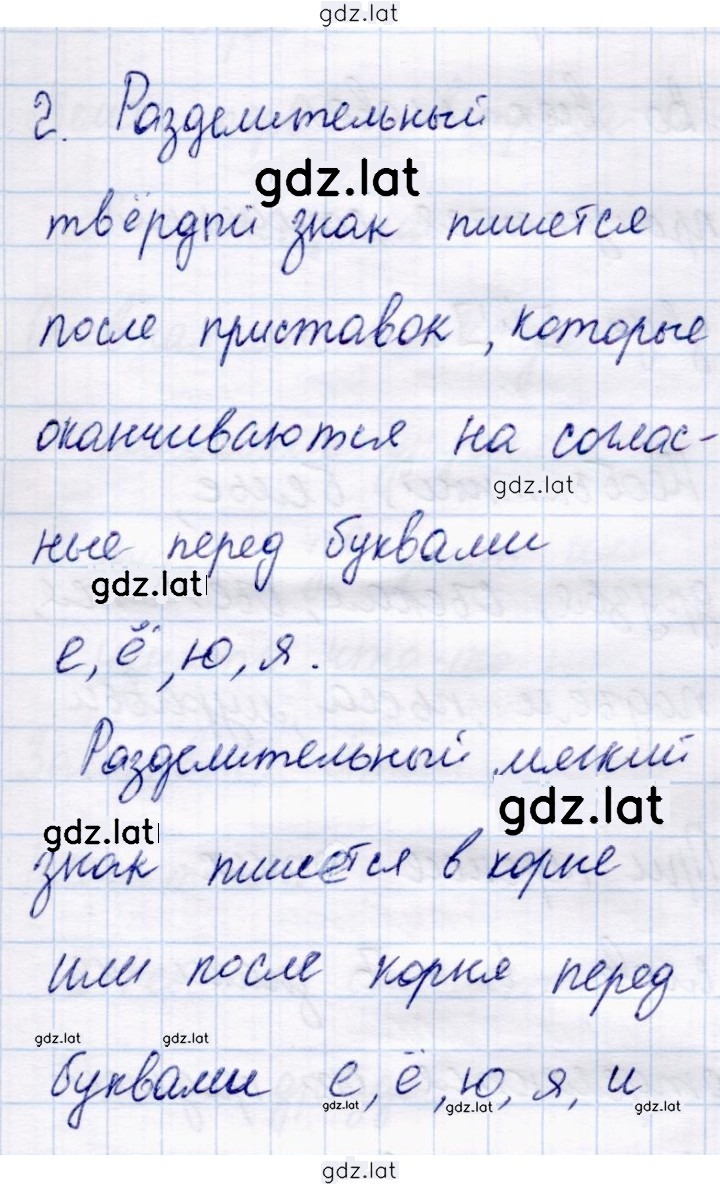 gdz.lat
2. Разделительный
gdz.lat
твёрдый знак пишется
после приставок, которые
оканчиваются на соглас-
gdz.lat
ные перед буквами
gdz.lat
е, ё, ю, я.
Разделительный мягкий
gdz.lat
gdz.lat
знак пишется в корне
или после корня перед
gdz.lat gdz.lat
буквами е, ё, ю, я, и
gdz.lat gdz.lat gdz.lat
gdz.lat